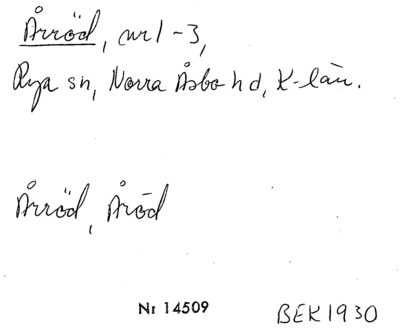 Årröd, nr 1-3,
Rya sn, Norra Åsbo hd, K-län.
Årröd, Åröd
Nr 14509
BEK 1930